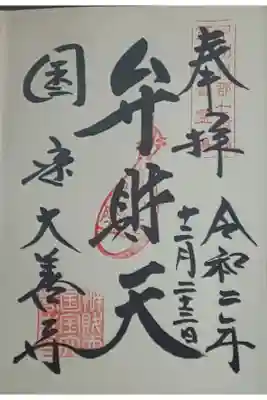 奉拝
令和二年
十二月二十三日
弁財天
國宝大善寺